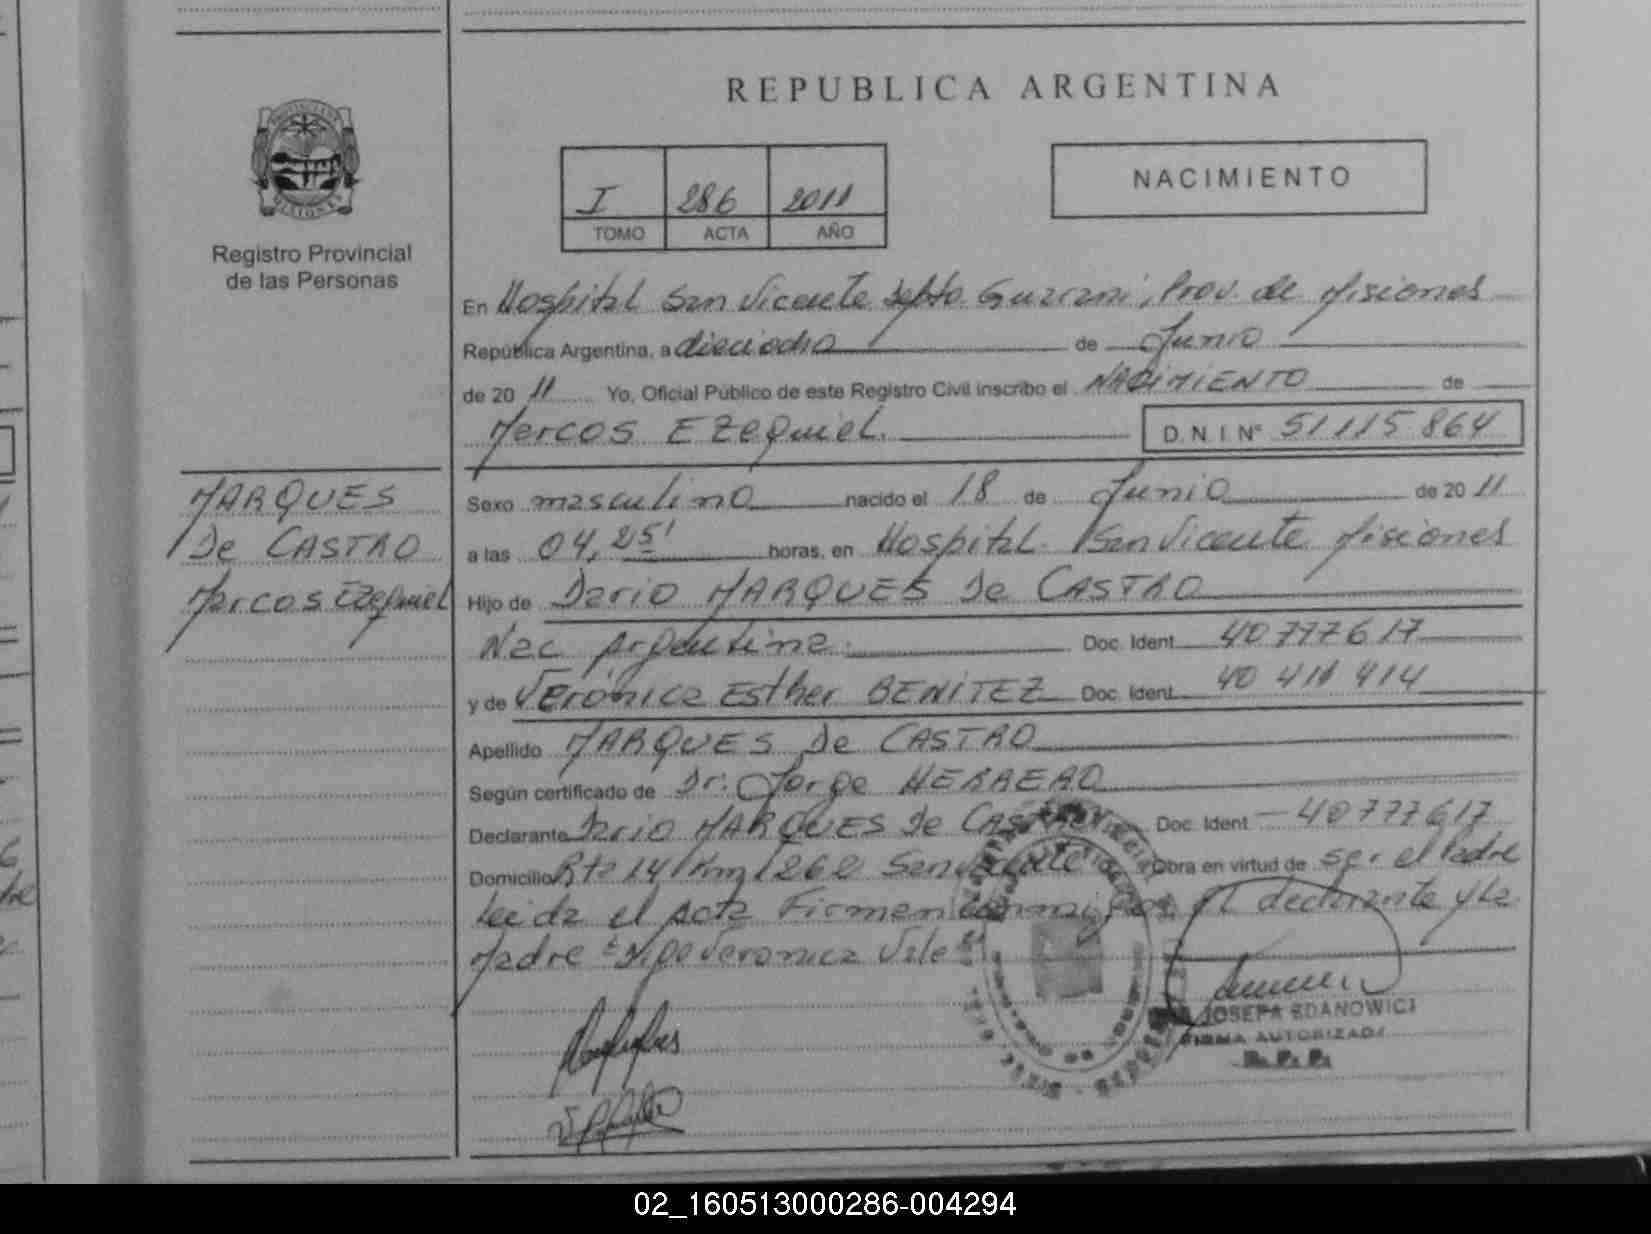 REPUBLICA ARGENTINA
I 286 2011
TOMO ACTA AÑO
NACIMIENTO
Registro Provincial
de las Personas
En Hospital San Vicente Depto. Guarani, Prov. de Misiones
República Argentina, a dieciocho de Junio
de 20 11 Yo, Oficial Público de este Registro Civil inscribo el NACIMIENTO de
Marcos EZEquiel. D.N.I. N° 51115864
MARQUES
De CASTRO
Marcos Ezequiel
Sexo masculino nacido el 18 de Junio de 20 11
a las 04,25' horas, en Hospital San Vicente Misiones
Hijo de Dario MARQUES De CASTRO
Nac Argentina. Doc. Ident. 40777617
y de Verónica Esther BENITEZ Doc. Ident. 40 411 414
Apellido MARQUES De CASTRO
Según certificado de Dr. Jorge HERRERO
Declarante Dario MARQUES De CASTRO Doc. Ident. 40777617
Domicilio Rta 14 Km 1262 San Vicente Obra en virtud de ser el Padre
Leida el Acta Firman conmigo el declarante y la
Madre Veronica Vale
JOSEFA ZDANOWICZ
FIRMA AUTORIZADA
R. P. P.
02_160513000286-004294